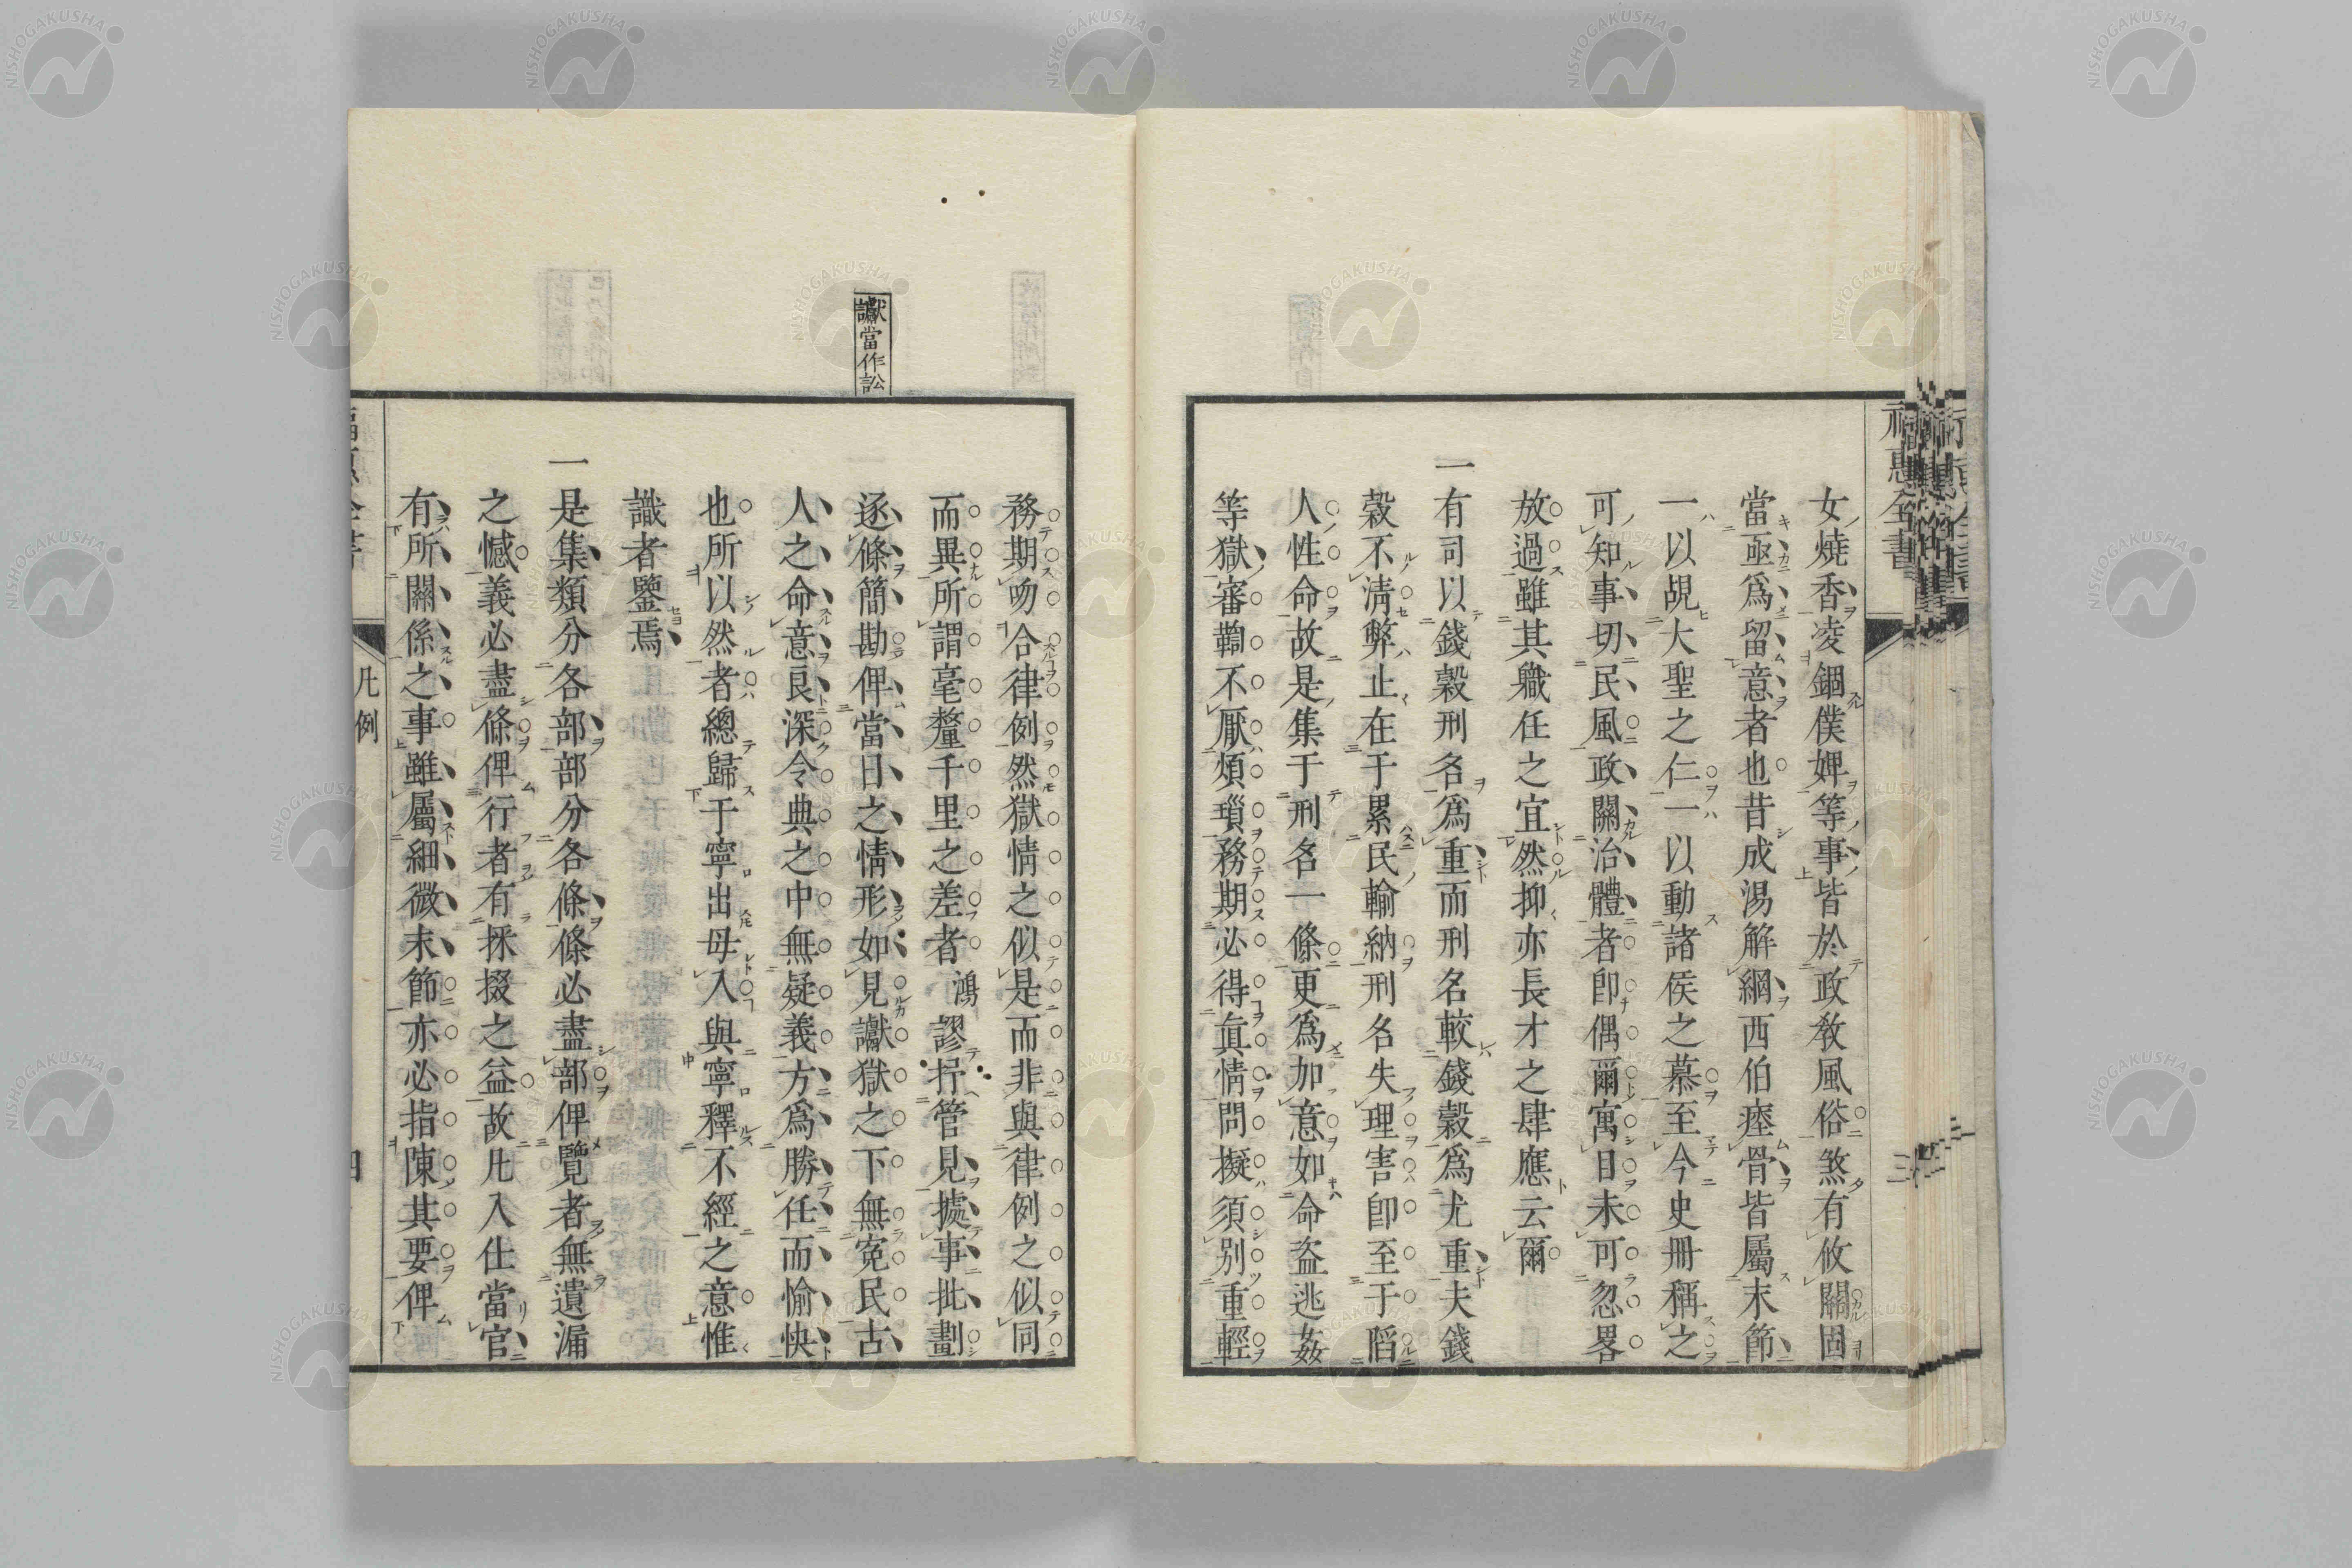 福惠全書
三
女燒香凌錮僕婢等事皆於政敎風俗煞有攸關固
當亟爲留意者也昔成湯解綱西伯瘞骨皆屬末節
一以覘大聖之仁一以動諸侯之慕至今史冊稱之
可知事切民風政關治體者卽偶爾寓目未可忽畧
放過雖其職任之宜然抑亦長才之肆應云爾
一有司以錢穀刑名爲重而刑名較錢穀爲尤重夫錢
穀不淸弊止在于累民輸納刑名失理害卽至于陷
人性命故是集于刑名一條更爲加意如命盜逃姦
等獄審鞫不厭煩瑣務期必得眞情問擬須別重輕
務期吻合律例然獄情之似是而非與律例之似同
而異所謂毫釐千里之差者鴻謬抒管見據事批劃
讞當作訟
逐條簡勘俾當日之情形如見讞獄之下無寃民古
人之命意良深令典之中無疑義方爲勝任而愉快
也所以然者總歸于寧出毋入與寧釋不經之意惟
識者鑒焉
一是集類分各部部分各條條必盡部俾覽者無遺漏
之憾義必盡條俾行者有採掇之益故凡入仕當官
有所關係之事雖屬細微末節亦必指陳其要俾
凡例
NISHOGAKUSHA